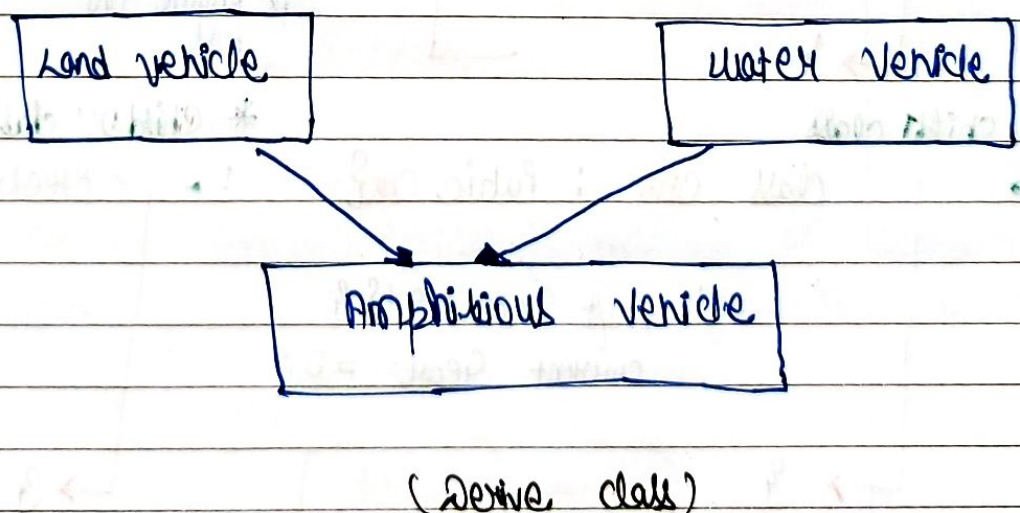 Land vehicle
water Vehicle
Amphibious vehicle
(Derive class)